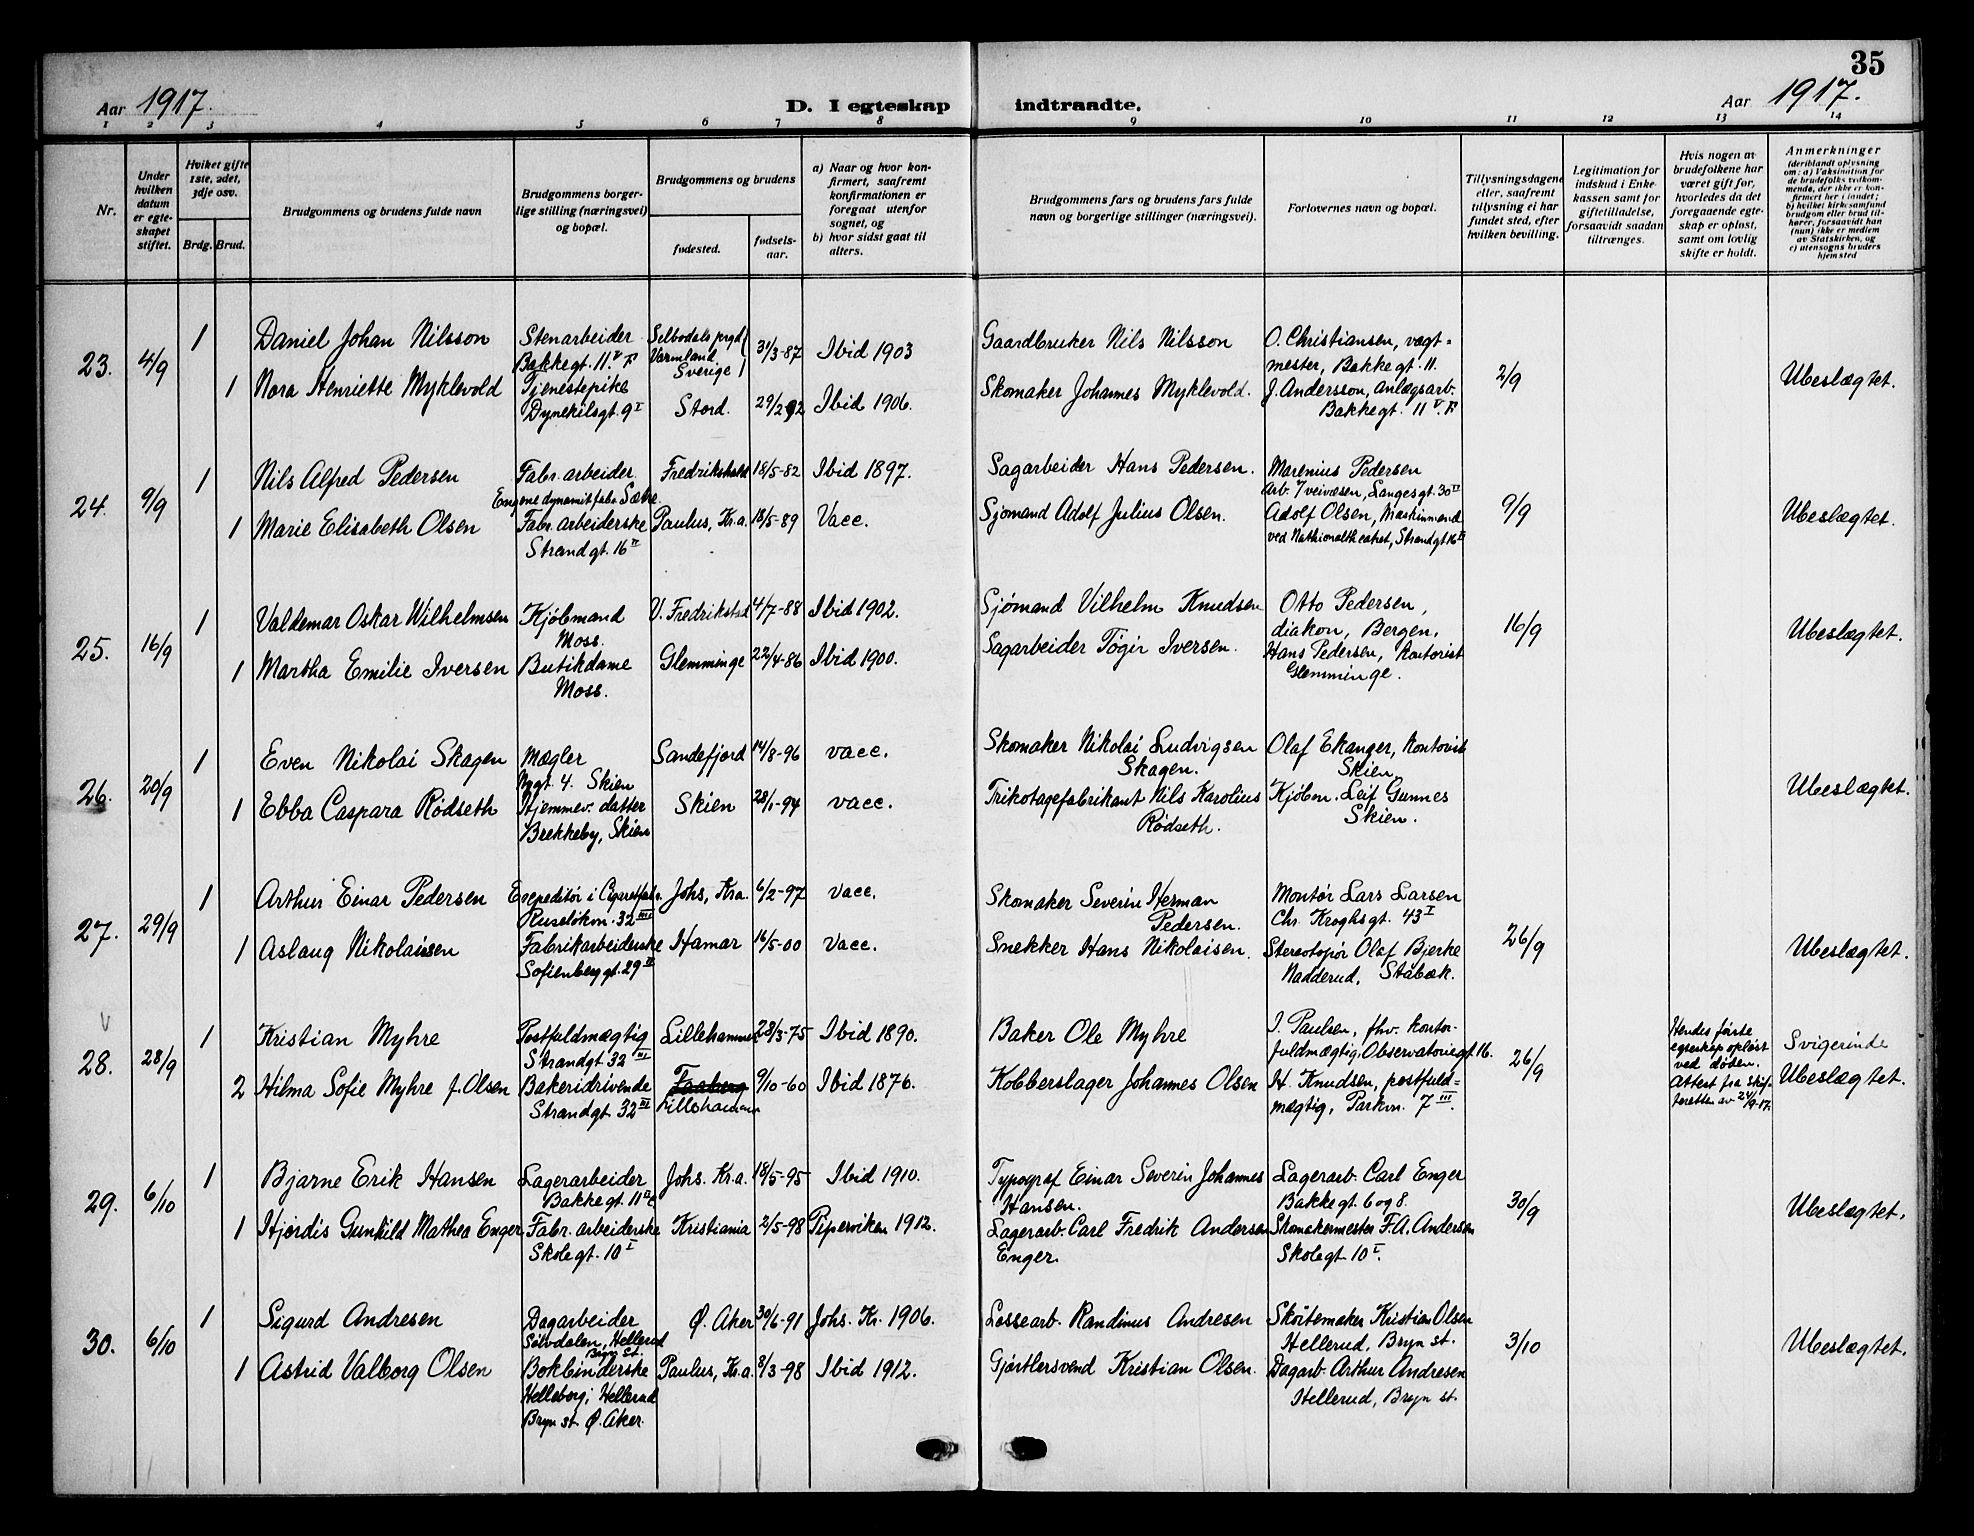 35
Aar 1917.
D. I egteskap indtraadte.
Aar 1917.
1 2 3 4 5 6 7 8 9 10 11 12 13 14
Nr.
Under
hvilken
datum
er egte-
skapet
stiftet.
Hviket gifte
1ste, 2det,
3dje osv.
Brdg. Brud.
Brudgommens og brudens fulde navn
Brudgommens borger-
lige stilling (næringsvei)
og bopæl.
Brudgommens og brudens
fødested.
fødsels-
aar.
a) Naar og hvor kon-
firmert, saafremt
konfirmationen er
foregaat utenfor
sognet, og
b) hvor sidst gaat til
alters.
Brudgommens fars og brudens fars fulde
navn og borgerlige stillinger (næringsvei).
Forlovernes navn og bopæl.
Tillysningsdagene
eller, saafremt
tillysning ei har
fundet sted, efter
hvilken bevilling.
Legitimation for
indskud i Enke-
kassen samt for
giftetilladelse,
forsaavidt saadan
tiltrænges.
Hvis nogen av
brudefolkene har
været gift før,
hvorledes da det
foregaaende egte-
skap er opløst,
samt om lovlig
skifte er holdt.
Anmerkninger
(deriblandt oplysning
om: a) Vaksination for
de brudefolks vedkom-
mende, der ikke er kon-
firmert her i landet;
b) hvilket kirkesamfund
brudgom eller brud til-
hører, forsaavidt han
(hun) ikke er medlem
av Statskirken, og
c) utensogns bruders
hjemsted
23. 4/9
1 Daniel Johan Nilsson
Stenarbeider
Bakkegt. 11. V F
Silbodals prgd
Varmland
Sverige
31/3-87
Ibid 1903
Gaardbruker Nils Nilsson
O. Christiansen, vagt-
mester, Bakkegt. 11.
1 Nora Henriette Myklevold
Tjenestepike
Dynekilsgt. 9 I
Stord.
29/2 92
Ibid 1906.
Skomaker Johannes Myklevold.
J. Andersson, anlægsarb.
Bakkegt. 11 V. F
2/9
Ubeslægtet.
24. 9/9
1 Nils Alfred Pedersen
Fabr. arbeider
Engene dynamitfabr. Sætre
Fredrikshald
18/5-82
Ibid 1897.
Sagarbeider Hans Pedersen.
Marenius Pedersen
arb. i veivæsen, Langesgt. 30 II
1 Marie Elisabeth Olsen
Fabr. arbeiderske
Strandgt. 16 II
Paulus, Kr.a.
18/5-89
Vacc.
Sjømand Adolf Julius Olsen.
Adolf Olsen, Maskinmand
ved Nathionaltheatret, Strandgt 16 II
9/9
Ubeslægtet.
25. 16/9
1 Valdemar Oskar Wilhelmsen
Kjøbmand
Moss.
V. Fredrikstad
4/7-88
Ibid 1902.
Sjømand Vilhelm Knudsen
Otto Pedersen,
diakon, Bergen.
1 Martha Emilie Iversen
Butikdame
Moss.
Glemminge
22/4-86
Ibid 1900.
Sagarbeider Tøgir Iversen.
Hans Pedersen, kontorist
Glemminge.
16/9
Ubeslægtet.
26. 20/9
1 Even Nikolai Skagen
Mægler
Nygt 4. Skien
Sandefjord
14/8-96
vacc.
Skomaker Nikolai Ludvigsen
Skagen.
Olaf Ekanger, kontorist
Skien
1 Ebba Caspara Rødseth
Hjemmev. datter
Brekkeby, Skien
Skien
28/1-94
vacc.
Trikotagefabrikant Nils Karolius
Rødseth.
Kjøbm. Leif Gunnes
Skien.
Ubeslægtet.
27. 29/9
1 Arthur Einar Pedersen
Expeditør i Cigaretfabr.
Ruseløkvn. 32 III
Johs, Kra.
6/2-97
vacc.
Skomaker Severin Herman
Pedersen.
Montør Lars Larsen
Chr. Kroghsgt. 43 I
1 Aslaug Nikolaisen
Fabrikarbeiderske
Sofienberggt. 29 II
Hamar
16/5-00
Vacc.
Snekker Hans Nikolaisen.
Stereotypør Olaf Bjerke
Nadderud, Stabæk.
26/9
Ubeslægtet.
V
28. 28/9
1 Kristian Myhre
Postfuldmægtig
Strandgt 32 III
Lillehammer
28/3-75
Ibid 1890.
Baker Ole Myhre
J. Paulsen, fhv. kontor-
fuldmægtig, Observatoriegt. 16.
2 Hilma Sofie Myhre f. Olsen
Bakeridrivende
Strandgt. 32 III
Faaberg
Lillehammer
9/10-60
Ibid 1876.
Kobberslager Johannes Olsen
H. Knudsen, postfuld=
mægtig, Parkvn. 7 III.
26/9
Hendes første
egteskap opløst
ved døden.
Attest fra skif-
teretten av 24/9-17.
Svigerinde
Ubeslægtet.
29. 6/10
1 Bjarne Erik Hansen
Lagerarbeider
Bakkegt. 11
Johs. Kr.a.
18/5-95
Ibid 1910.
Typograf Einar Severin Johannes
Hansen.
Lagerarb. Carl Enger
Bakkegt. 6 og 8.
1 Hjørdis Gunhild Mathea Enger
Fabr. arbeiderske
Skolegt. 10 I
Kristiania
2/5-98
Pipervikен 1912.
Lagerarb. Carl Fredrik Andersen
Enger.
Skomakermester F.A. Andersen
Skolegt 10 I.
30/9
Ubeslægtet.
30. 6/10
1 Sigurd Andresen
Dagarbeider
Sølvdalen, Hellerud
Bryn St.
Ø. Aker
30/6-91
Johs. Kr. 1906.
Lossearb. Randinus Andresen
Skøitemaker Kristian Olsen
Hellerud, Bryn st.
1 Astrid Valborg Olsen
Bokbinderske
Helleborg, Hellerud
Bryn st. Ø. Aker.
Paulus, Kr.a.
8/3-98
Ibid 1912.
Gjørtlersvend Kristian Olsen.
Dagarb. Arthur Andresen
Hellerud, Bryn st.
3/10
Ubeslægtet.